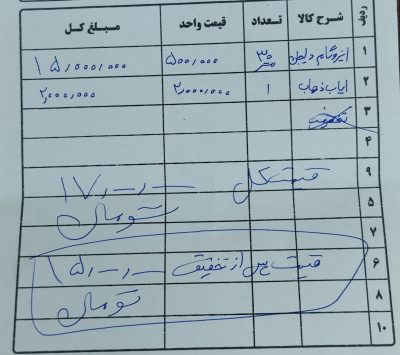 ردیف شرح کالا تعداد قیمت واحد مبلغ کل
۱ ۳۰ ۵۰۰/۰۰۰ ۱۵/۰۰۰/۰۰۰
۲ ایاب ذهاب ۱ ۲/۰۰۰/۰۰۰ ۲/۰۰۰/۰۰۰
۳ تخفیف
۴
۹ قیمت کل ۱۷/۰۰/۰۰
۵ تومان
۷
۶ قیمت پس از تخفیف ۱۵/۰۰/۰۰
۸ تومان
۱۰